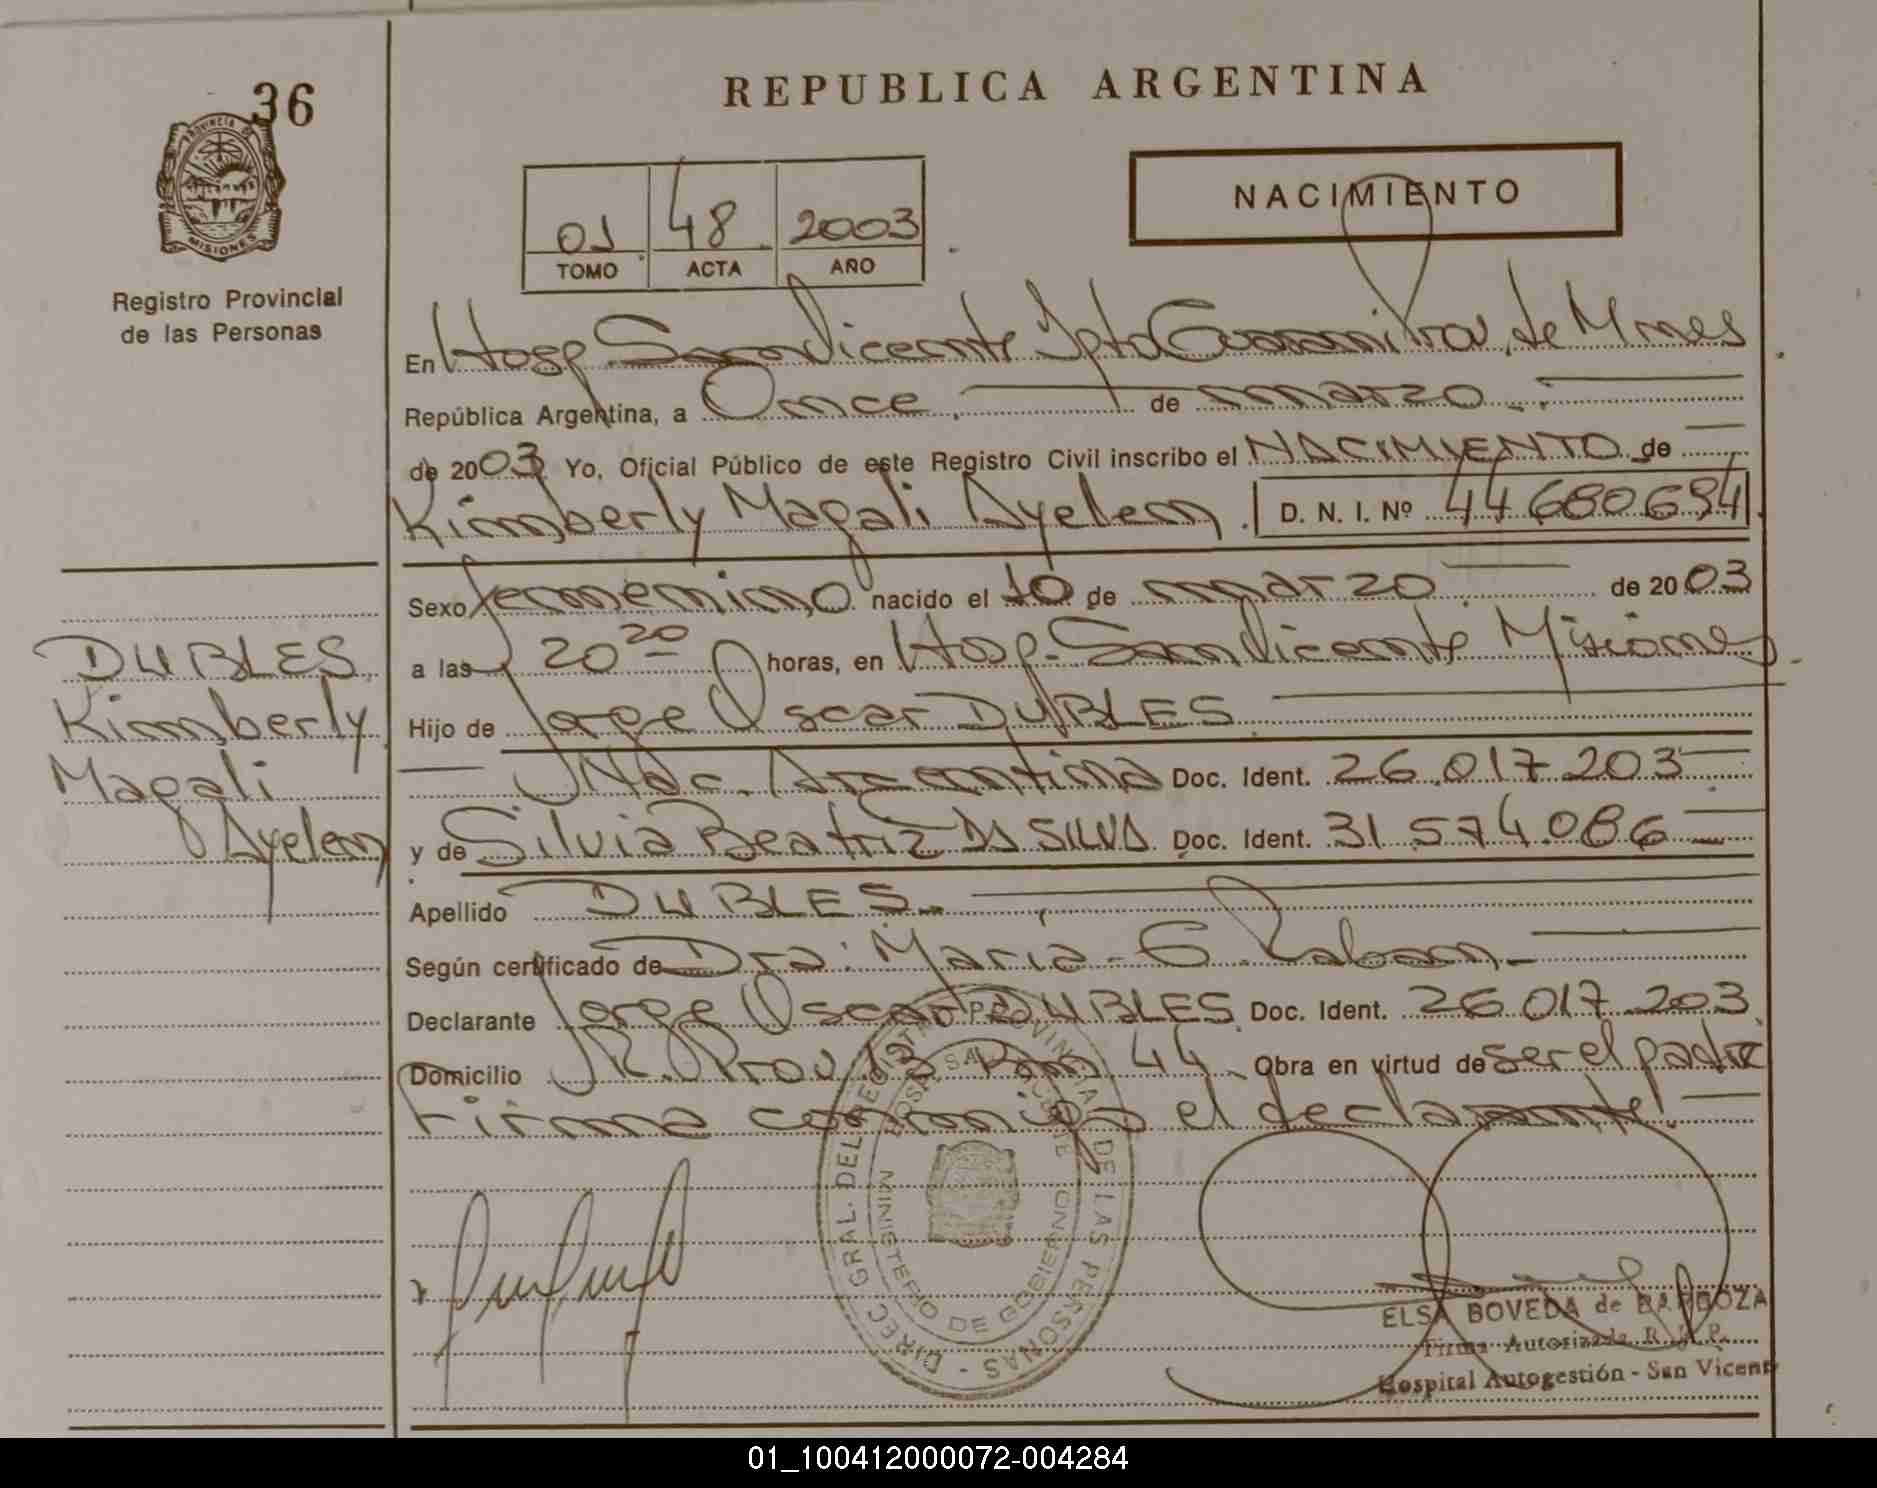 36
REPUBLICA ARGENTINA
PROVINCIA DE
MISIONES
Registro Provincial
de las Personas
01 48 2003
TOMO ACTA AÑO
NACIMIENTO
En Hosp San Vicente Dpto Guaraní Prov. de Mnes
República Argentina, a Once de marzo
de 2003 Yo, Oficial Público de este Registro Civil inscribo el NACIMIENTO de
Kimberly Magali Ayelen D. N. I. Nº 44680694
Sexo femenino nacido el 10 de marzo de 2003
a las 20 20 horas, en Hosp. San Vicente Misiones
Hijo de Jorge Oscar DUBLES
Nac. Argentina Doc. Ident. 26.017.203
y de Silvia Beatriz DA SILVA Doc. Ident. 31.574.086
Apellido DUBLES
Según certificado de Dra: Maria - E.
Declarante Jorge Oscar DUBLES Doc. Ident. 26.017.203
Domicilio R. Prov 13 Km 44 Obra en virtud de ser el padre
Firma conmigo el declarante.
DUBLES
Kimberly
Magali
Ayelen
DIREC. GRAL. DEL REGISTRO PROVINCIAL DE LAS PERSONAS
HOSP. SAN VICENTE
MINISTERIO DE GOBIERNO
ELSA BOVEDA de BARBOZA
Firma Autorizada R. P.
Hospital Autogestión - San Vicente
01_100412000072-004284